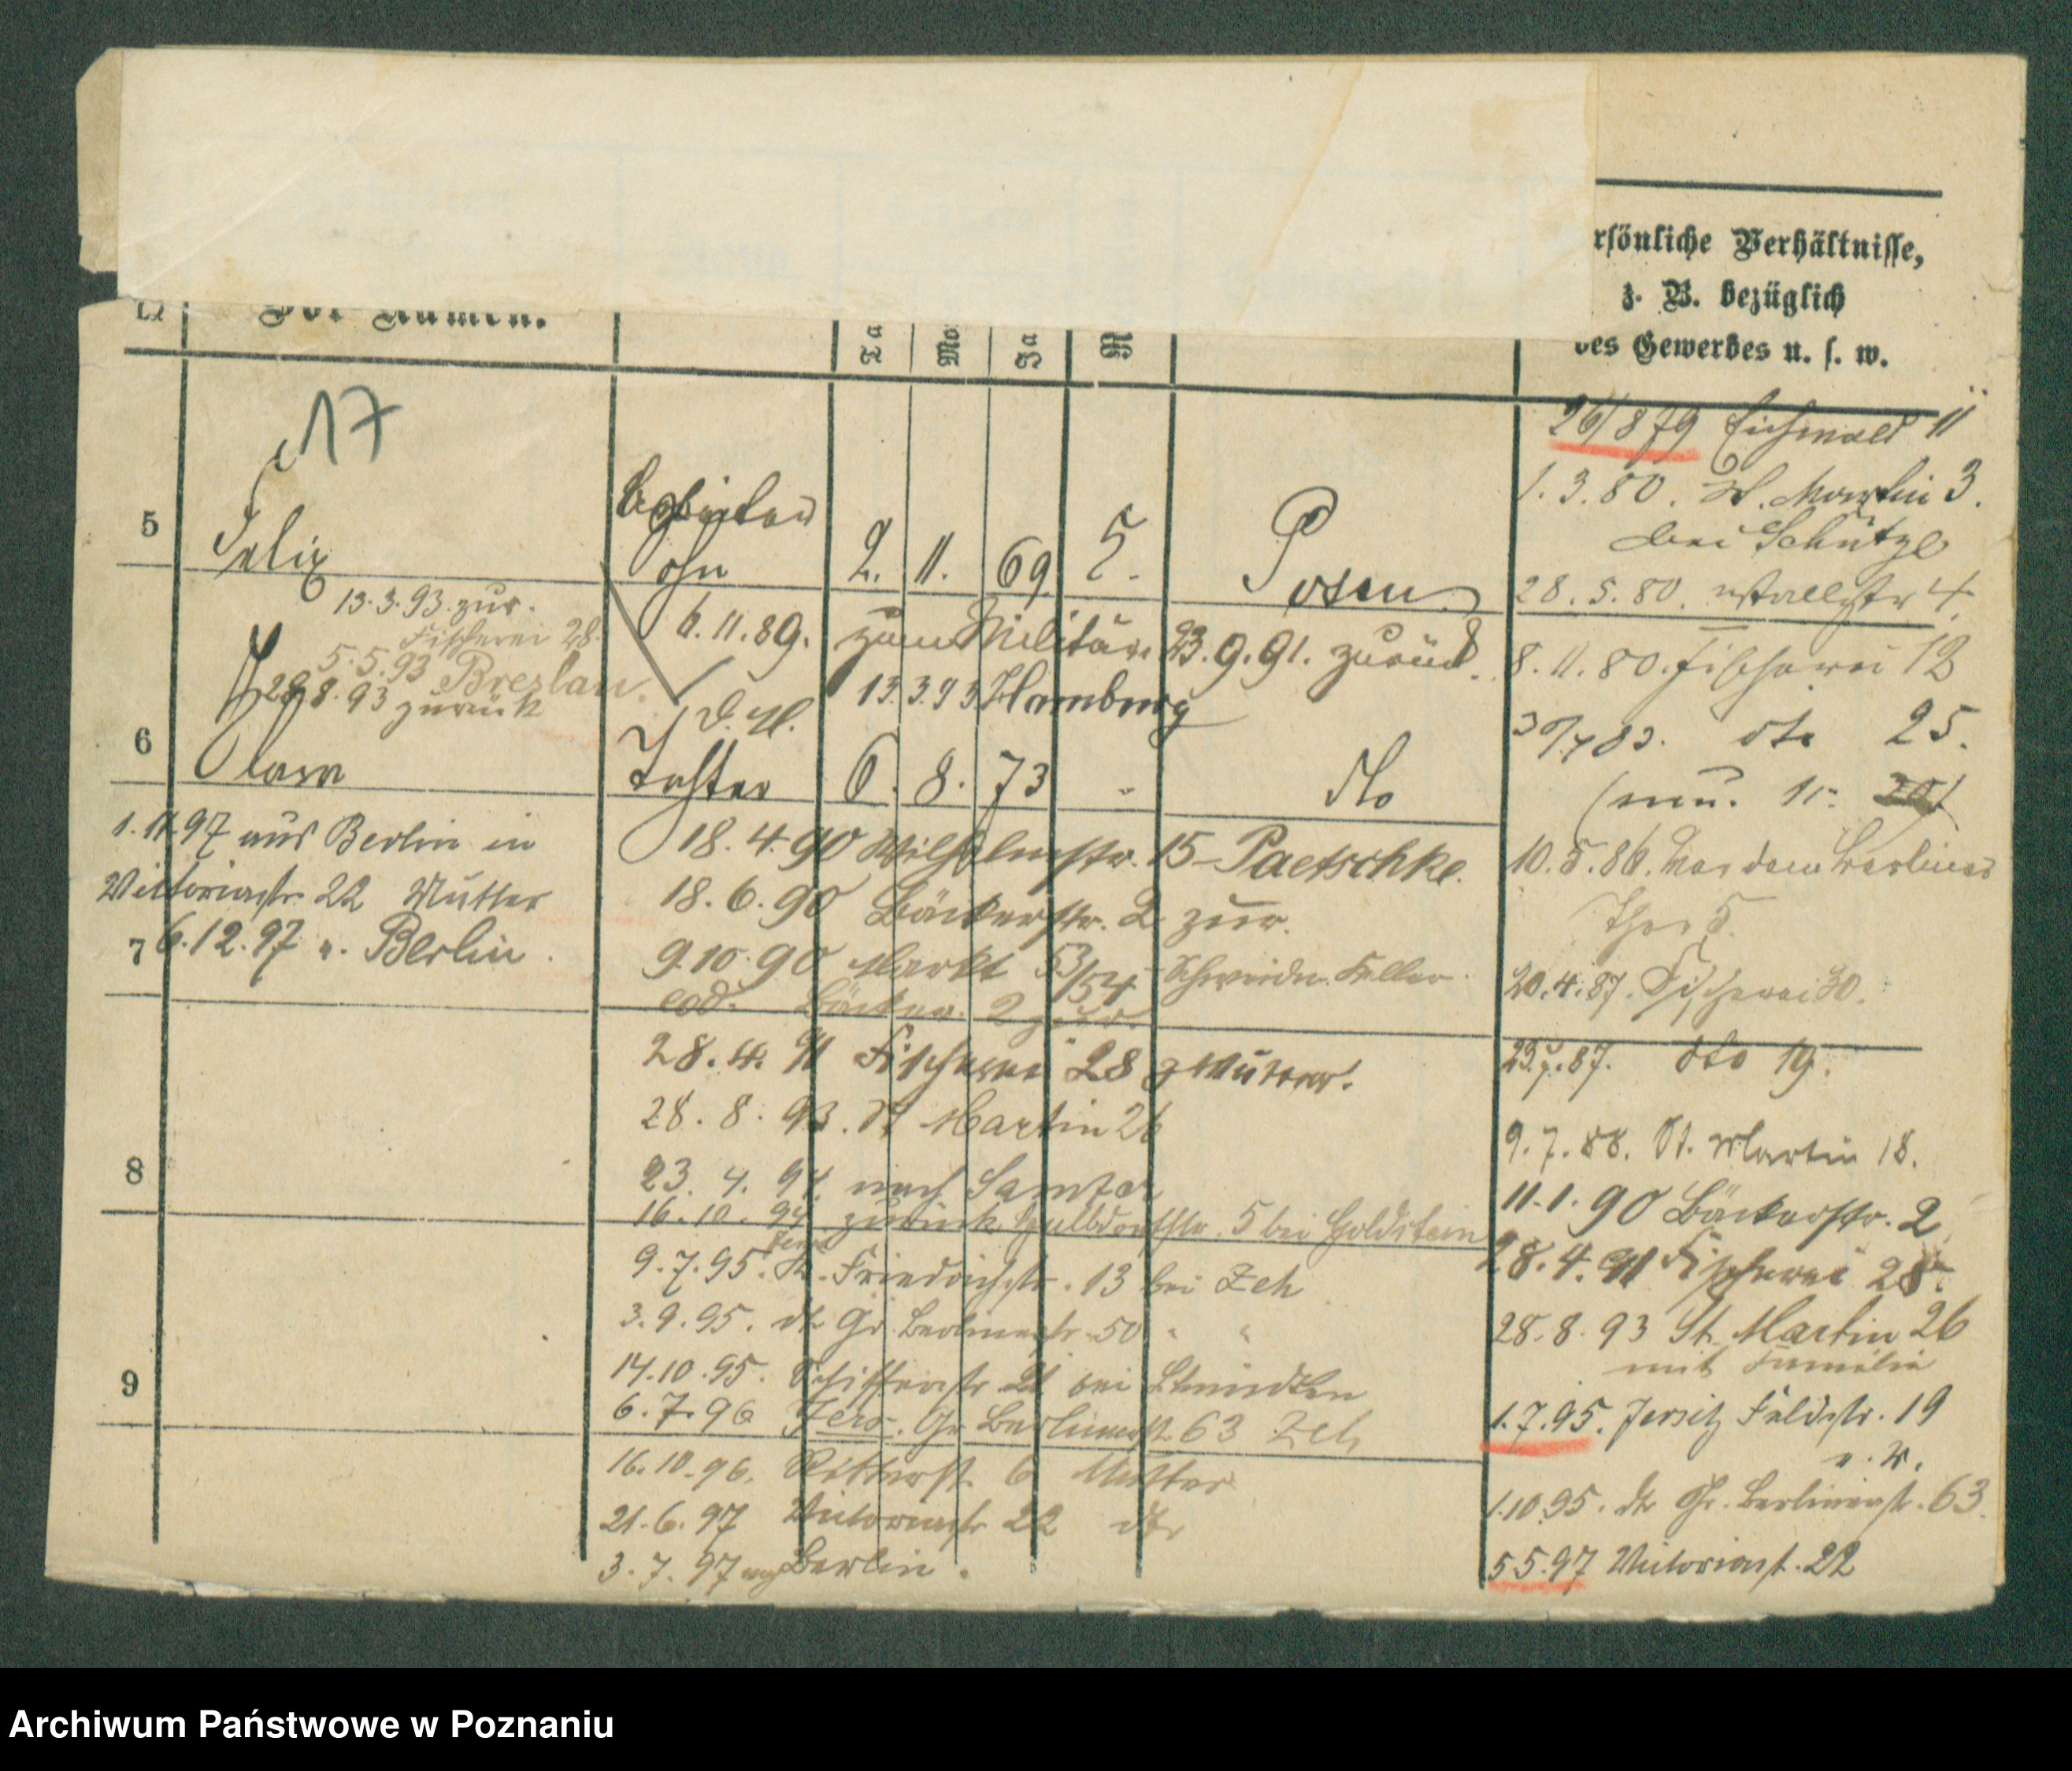 rsönliche Verhältnisse,
z. B. bezüglich
des Gewerbes u. s. w.
Vor-Namen.
17
5
Felix
Sohn
2. 11. 69. 5.
Posen
13.3.93. zur.
Fischerei 28.
5.5.93 Breslau.
28.8.93 zurück
6.11.89. zum Militär. 23.9.91. zurück.
13.3.93 Hamburg
6
Clara
Tochter
6. 8. 73
dto
1.11.97 aus Berlin in
Victoriastr. 22 Mutter
7
6.12.97 n. Berlin.
18.4.90 Wilhelmstr. 15 Paetschke.
18.6.90 Bäckerstr. 2 zur.
9.10.90 Markt 53/54 Keller.
eod. Bäcker. 2 zur.
28.4.91 Fischerei 28 z Mutter.
28.8.93. St Martin 26
8
23.4.94. nach Samter
16.10.94 zurück 5 bei Goldstein
9
9.7.95. Friedrichstr. 13 bei Zeh
3.9.95. dt Gr. Berlinerstr. 50 " "
14.10.95. Schifferstr 21 bei
6.7.96 Jers. Gr Berlinerst. 63 Zeh
16.10.96. Ritterst. 6 Mutter
21.6.97 Victoriastr 22 dto
3.7.97 Berlin.
26/8 79 Eichwald 11
1.3.80. St. Martin 3.
bei Schütze
28.5.80. Wallstr 4.
8.11.80. Fischerei 12
30/7 83. dto 25.
10.5.86. Vor dem Berliner
Thor 5.
20.4.87. Fischerei 30.
23.7.87. dto 19.
9.7.88. St. Martin 18.
11.1.90 Bäckerstr. 2
28.4.91 Fischerei 28.
28.8.93 St. Martin 26
mit Familie
1.7.95. Jersitz Feldstr. 19
1.10.95. dt Gr. Berlinerst. 63.
5.5.97 Victoriast. 22
Archiwum Państwowe w Poznaniu